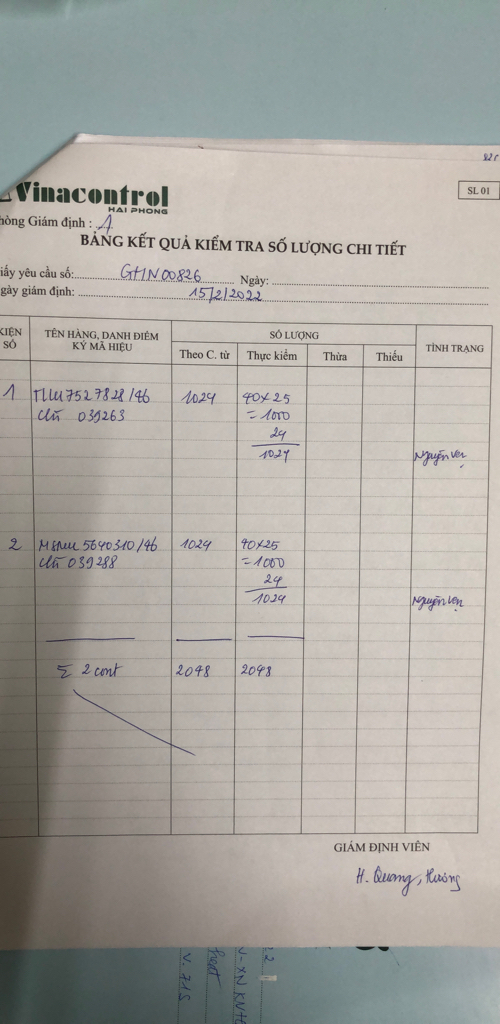 Vinacontrol
HAI PHONG
SL 01
hòng Giám định : A
BẢNG KẾT QUẢ KIỂM TRA SỐ LƯỢNG CHI TIẾT
iấy yêu cầu số: GHN00826 Ngày:
gày giám định: 15/2/2022
KIỆN SỐ TÊN HÀNG, DANH ĐIỂM KÝ MÃ HIỆU SỐ LƯỢNG TÌNH TRẠNG
Theo C. từ Thực kiểm Thừa Thiếu
1 7527828/46 1024 40x25
chì 039263 = 1000
24
1024 Nguyên vẹn
2 5640310/46 1024 40x25
chì 039288 = 1000
24
1024 Nguyên vẹn
Σ 2 cont 2048 2048
GIÁM ĐỊNH VIÊN
H. Quang, Hương
V. 715